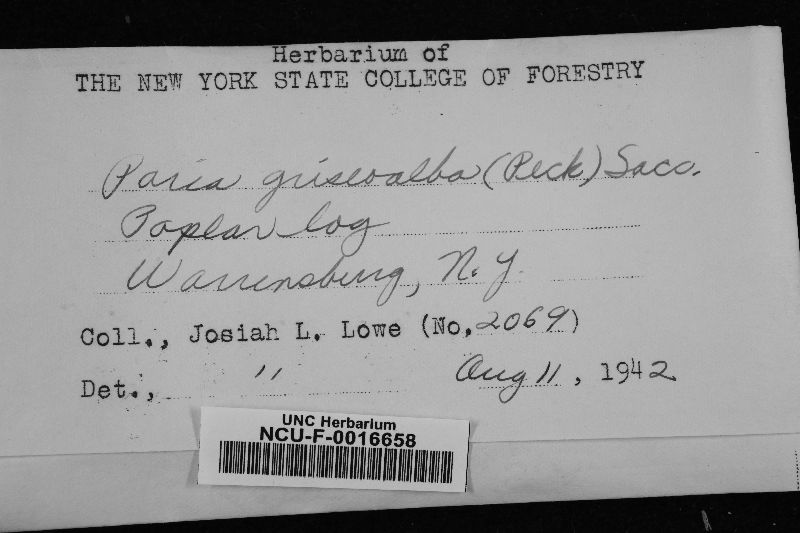 Herbarium of
THE NEW YORK STATE COLLEGE OF FORESTRY
Poria griseoalba (Peck) Sacc.
Poplar log
Warrensburg, N.Y.
Coll., Josiah L. Lowe (No. 2069)
Det., " Aug 11, 1942
UNC Herbarium
NCU-F-0016658